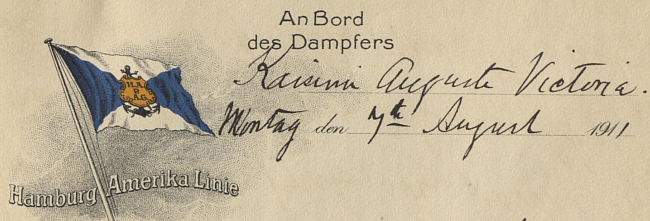 An Bord
des Dampfers
Kaiserin Auguste Victoria.
Montag den 7th August 1911
H.A.
P.
A.G.
Hamburg Amerika Linie